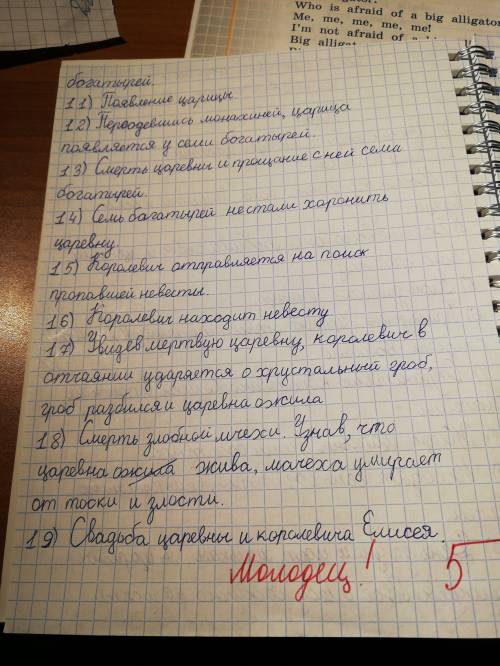 Who is afraid of a big alligator
Me, me, me, me, me!
I'm not afraid of a
Big
богатырей.
11) Появление царицы.
12) Переодевшись монахиней, царица
появляется у семи богатырей.
13) Смерть царевны и прощание с ней семи
богатырей.
14) Семь богатырей не стали хоронить
царевну.
15) Королевич отправляется на поиск
пропавшей невесты.
16) Королевич находит невесту
17) Увидев мертвую царевну, королевич в
отчаянии ударяется о хрустальный гроб,
гроб разбился и царевна ожила
18) Смерть злобной мчехи. Узнав, что
царевна ожила жива, мачеха умирает
от тоски и злости.
19) Свадьба царевны и королевича Елисея.
Молодец! 5